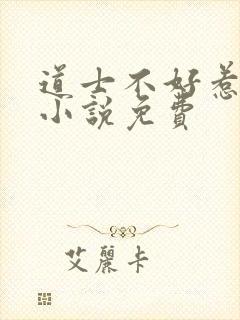 道士不好惹
小說免費
艾麗卡